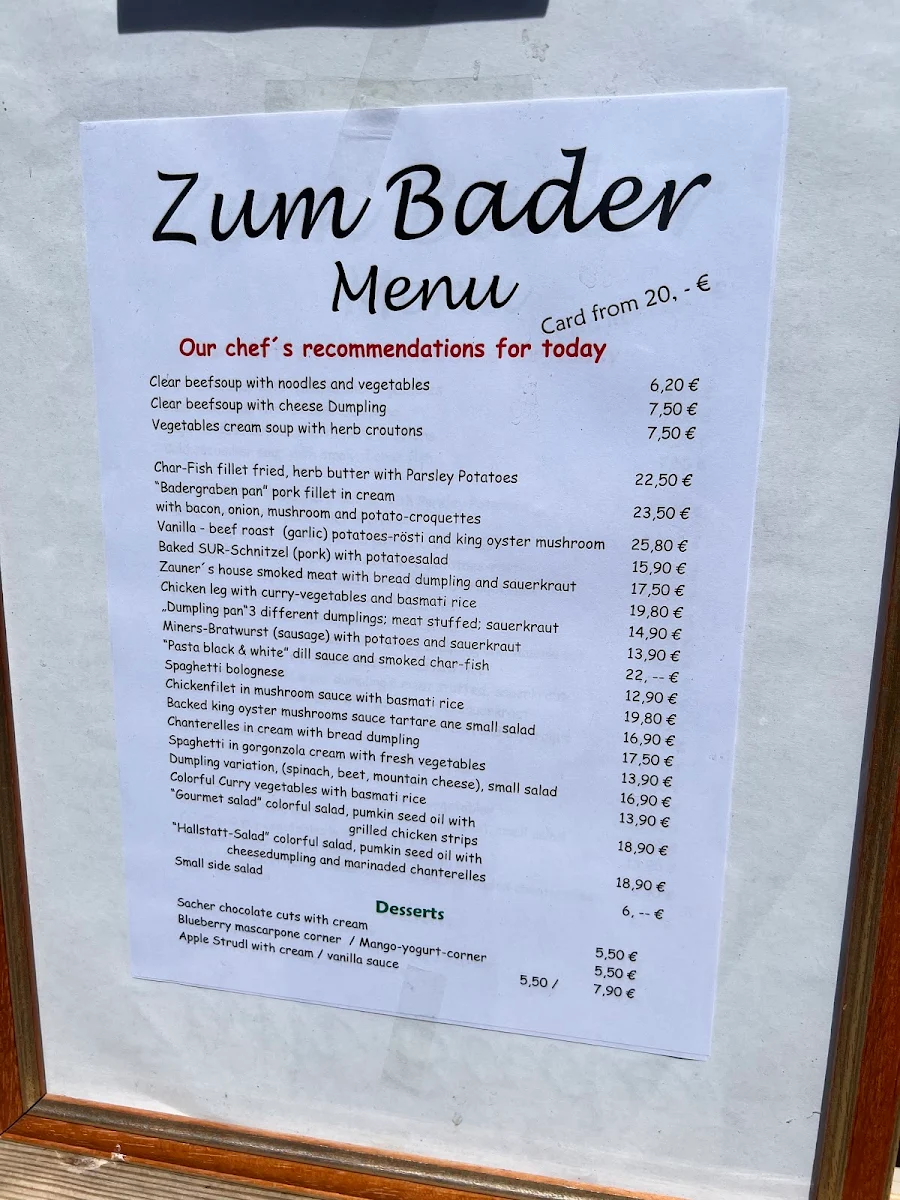 Zum Bader
Menu
Card from 20, - €
Our chef´s recommendations for today
Clear beefsoup with noodles and vegetables 6,20 €
Clear beefsoup with cheese Dumpling 7,50 €
Vegetables cream soup with herb croutons 7,50 €
Char-Fish fillet fried, herb butter with Parsley Potatoes 22,50 €
"Badergraben pan" pork fillet in cream
with bacon, onion, mushroom and potato-croquettes 23,50 €
Vanilla - beef roast (garlic) potatoes-rösti and king oyster mushroom 25,80 €
Baked SUR-Schnitzel (pork) with potatoesalad 15,90 €
Zauner´s house smoked meat with bread dumpling and sauerkraut 17,50 €
Chicken leg with curry-vegetables and basmati rice 19,80 €
„Dumpling pan"3 different dumplings; meat stuffed; sauerkraut 14,90 €
Miners-Bratwurst (sausage) with potatoes and sauerkraut 13,90 €
"Pasta black & white" dill sauce and smoked char-fish 22, -- €
Spaghetti bolognese 12,90 €
Chickenfilet in mushroom sauce with basmati rice 19,80 €
Backed king oyster mushrooms sauce tartare ane small salad 16,90 €
Chanterelles in cream with bread dumpling 17,50 €
Spaghetti in gorgonzola cream with fresh vegetables 13,90 €
Dumpling variation, (spinach, beet, mountain cheese), small salad 16,90 €
Colorful Curry vegetables with basmati rice 13,90 €
"Gourmet salad" colorful salad, pumkin seed oil with
grilled chicken strips 18,90 €
"Hallstatt-Salad" colorful salad, pumkin seed oil with
cheesedumpling and marinaded chanterelles 18,90 €
Small side salad 6, -- €
Desserts
Sacher chocolate cuts with cream 5,50 €
Blueberry mascarpone corner / Mango-yogurt-corner 5,50 €
Apple Strudl with cream / vanilla sauce 5,50 / 7,90 €